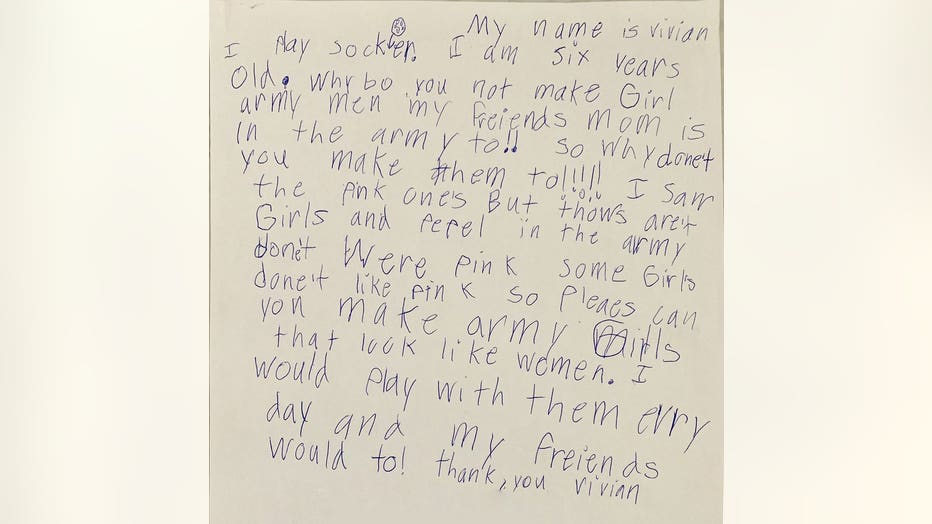 My name is vivian
I play socker. I am six years
old. Why bo you not make Girl
army men my freiends mom is
in the army to!! so why donet
you make them to!!!!! I sam
the pink ones But thows are't
Girls and pepel in the army
donet Were pink some Girls
done't like pink so pleaes can
you make army Girls
that look like women. I
would play with them evry
day and my freiends
would to! thank, you vivian